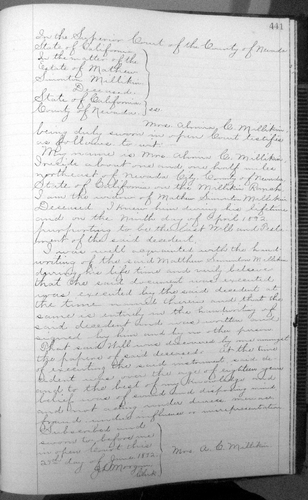 441
In the Superior Court of the County of Nevada
State of California
In the matter of the
Estate of Mathew
Smith Milliken
Deceased
State of California
County of Nevada } ss
Mrs. Almira C. Milliken
being duly sworn in open Court testifies
as follows to wit
My name is Mrs Almira C. Milliken
I reside about one and one half miles
northeast of Nevada City County of Nevada
State of California on the Milliken Ranch.
I am the widow of Mathew Milliken
Deceased I knew him during his lifetime
and on the Ninth day of April 1892
purporting to be the last Will and Testa-
ment of the said decedent.
I was well acquainted with the hand
writing of the said Mathew Milliken
during his life time and verily believe
that the said document was executed
was executed by the said decedent at
the time therein and that the
same is entirely in the handwriting of
said decedent and was written and
signed by him and by no other person.
That said Will was discovered by me amongst
the papers of said deceased. At the time
of executing the said instrument said de-
cedent was over the age of eighteen years
and to the best of my knowledge and
belief was of sound and disposing mind
and not acting under duress menace
fraud undue influence or misrepresentation
Subscribed and
sworn to before me
in open Court this
27th day of June 1892
Mrs A. C. Milliken
Morgan
Clerk